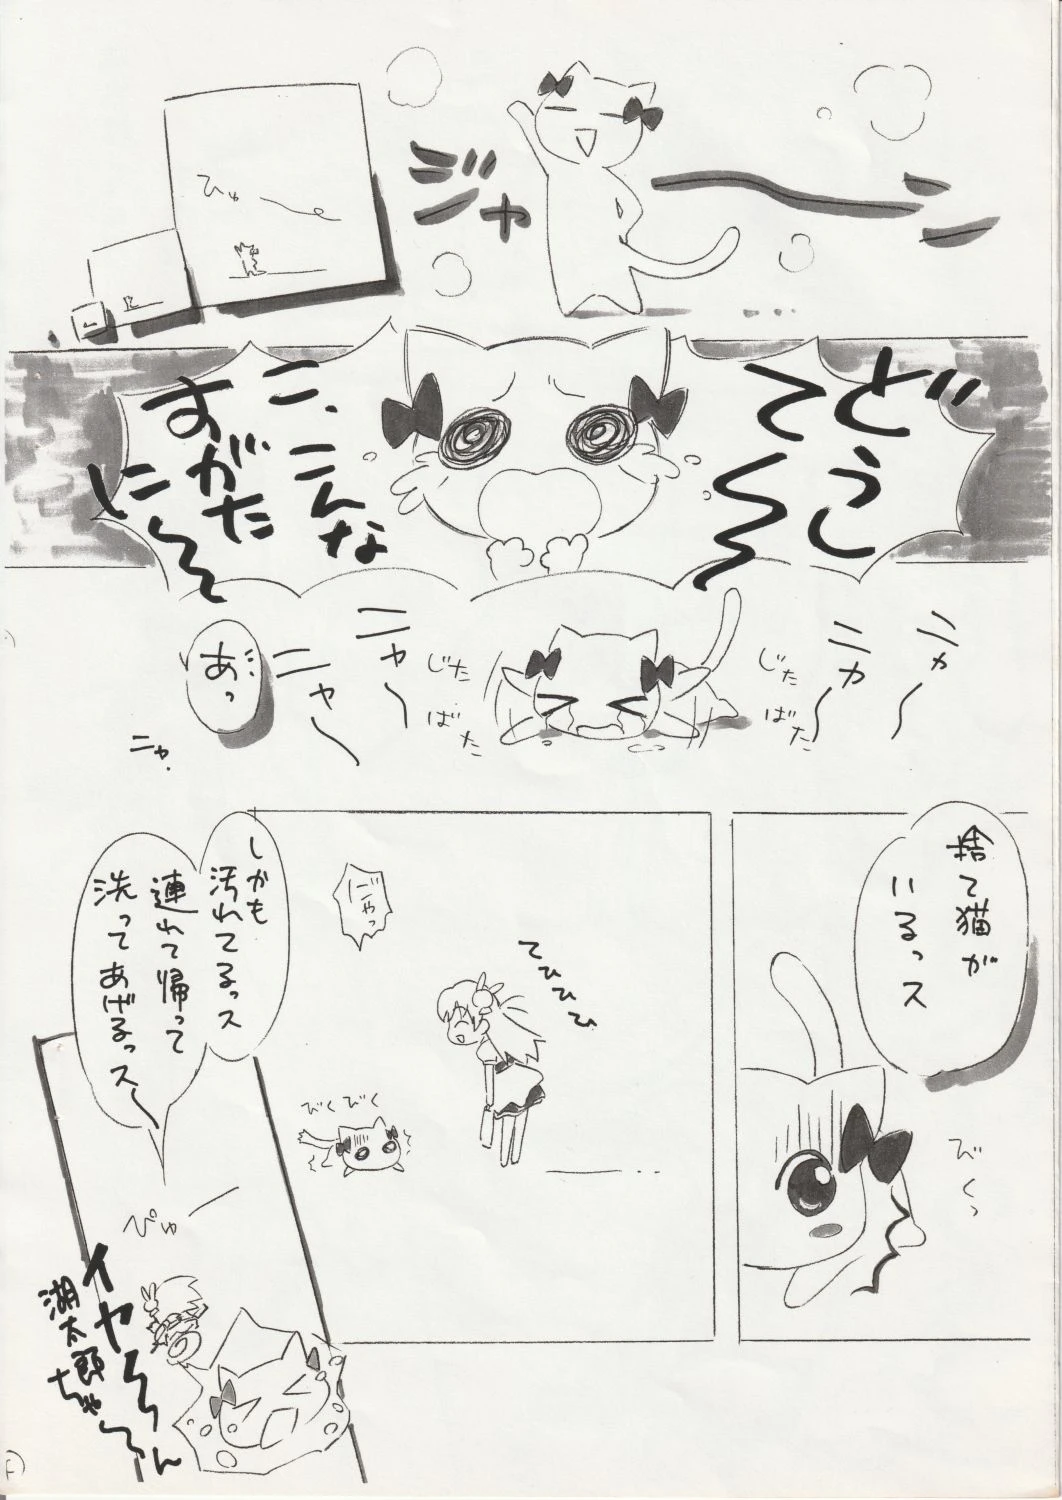 ジャーン
ひゅ
どうし
て〜〜
こ、こんな
すがた
に〜〜
ニャ〜
ニャ〜
じた
ばた
じた
ばた
ニャ〜
ニャ〜
あっ
ニャ
捨て猫が
いるっス
びくっ
てひひひひ
にゃっ
びくびく
しかも
汚れてるっス
連れて帰って
洗ってあげるっス〜
ぴゅー
イヤ〜〜ん
湖太郎ちゃ〜ん